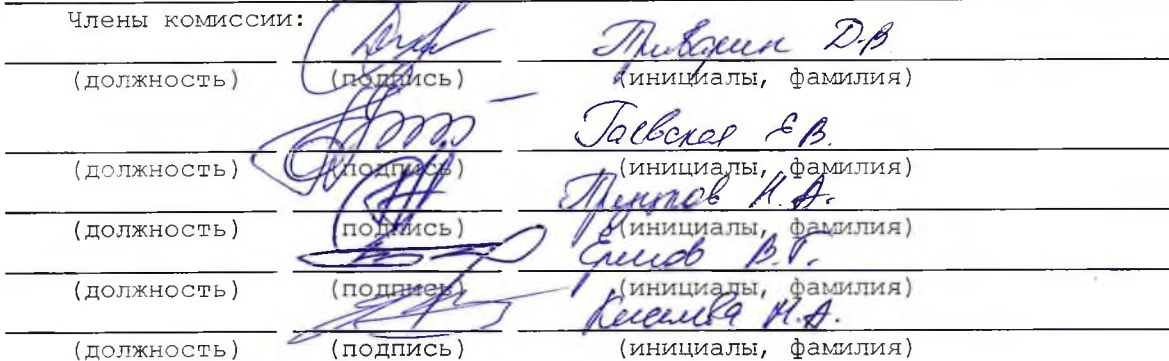 Члены комиссии:
Д.В.
(должность) (подпись) (инициалы, фамилия)
Гаевская Е.В.
(должность) (подпись) (инициалы, фамилия)
Н.А.
(должность) (подпись) (инициалы, фамилия)
В.Г.
(должность) (подпись) (инициалы, фамилия)
Н.А.
(должность) (подпись) (инициалы, фамилия)